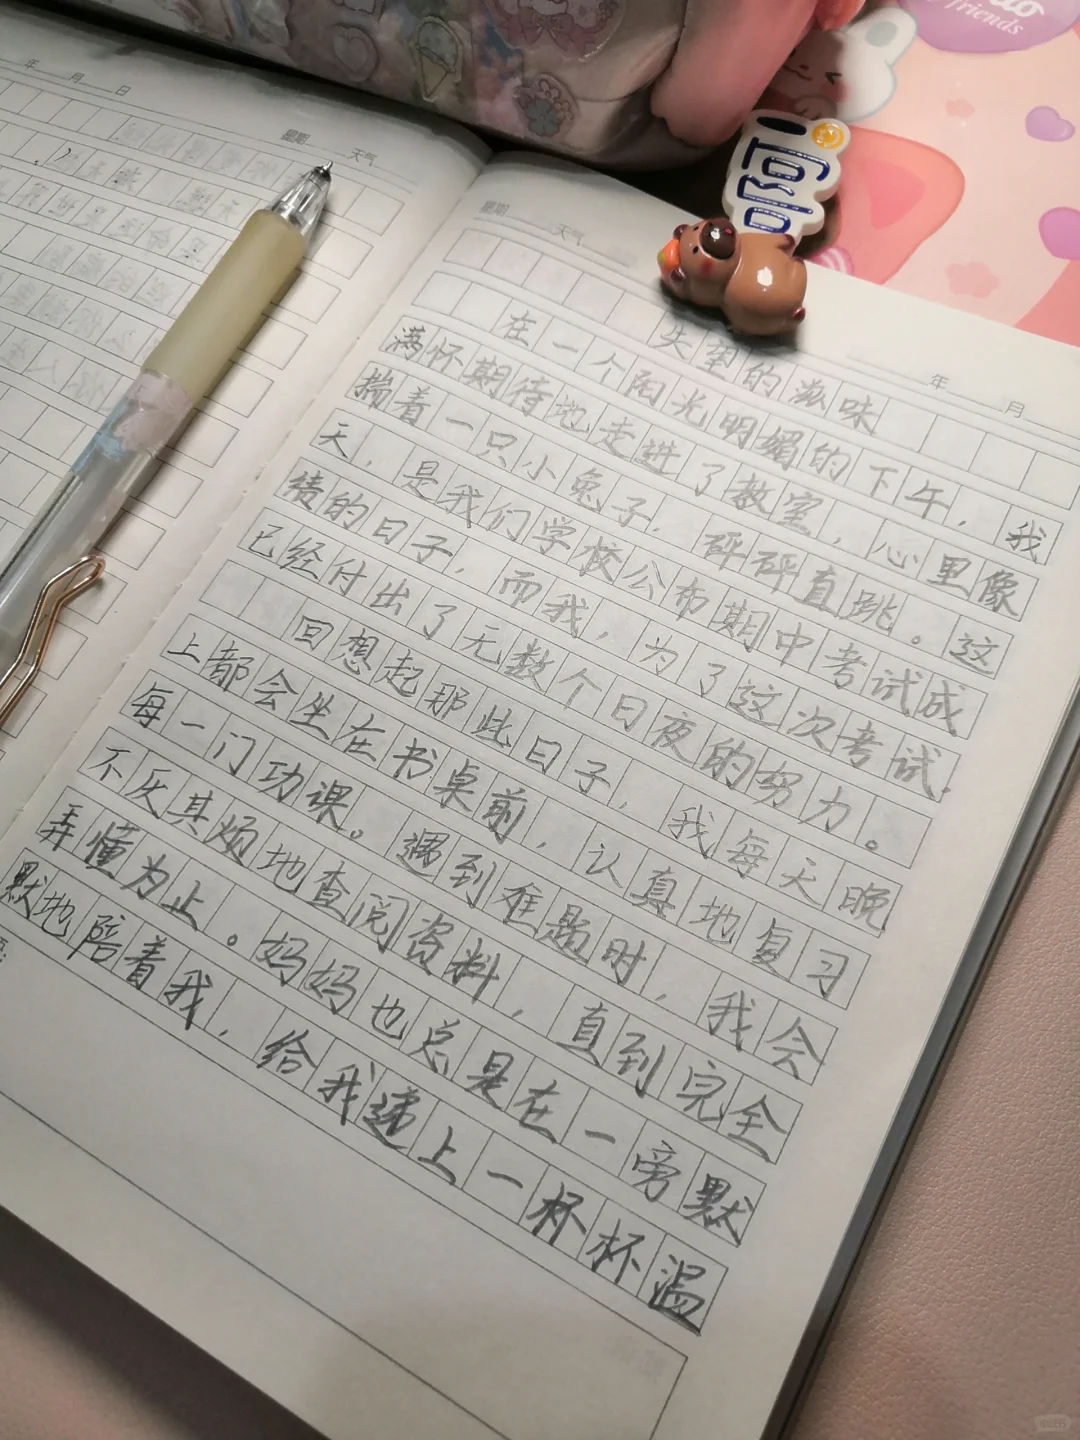 friends
年 月 日
星期 天气
星期 天气
年 月
失望的滋味
在一个阳光明媚的下午，我
满怀期待地走进了教室，心里像
揣着一只小兔子，砰砰直跳。这
天，是我们学校公布期中考试成
绩的日子，而我，为了这次考试，
已经付出了无数个日夜的努力。
回想起那些日子，我每天晚
上都会坐在书桌前，认真地复习
每一门功课。遇到难题时，我会
不厌其烦地查阅资料，直到完全
弄懂为止。妈妈也总是在一旁默
默地陪着我，给我递上一杯杯温